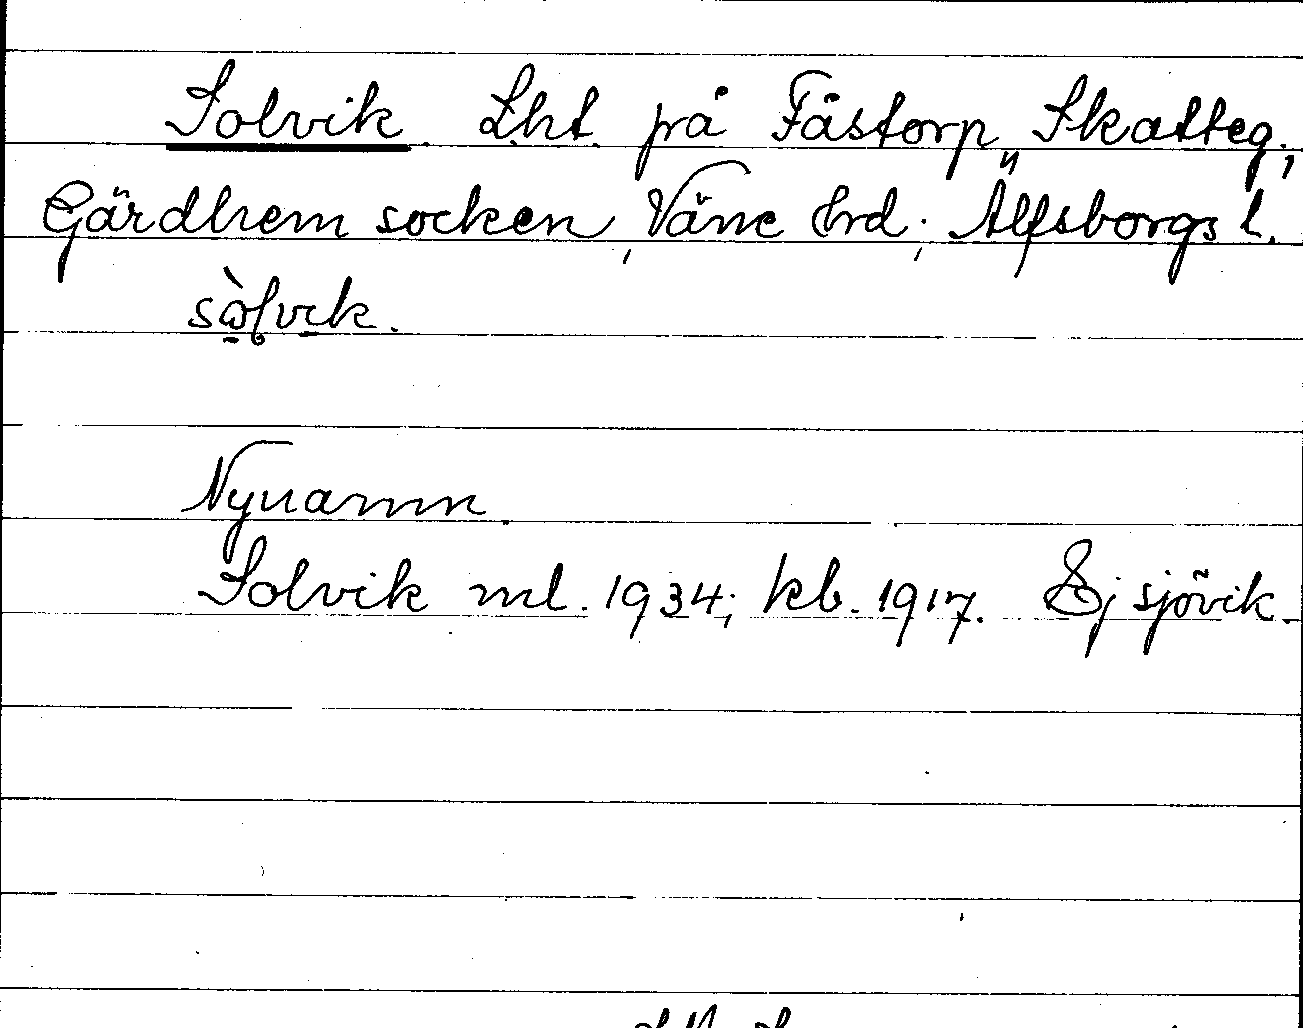 Solvik. Lht. på Fåstorp, Skatteg.,
Gärdhem socken, Väne hrd, Älfsborgs l.
Nynamn.
Solvik ml. 1934; kb. 1917. Ej sjövik.